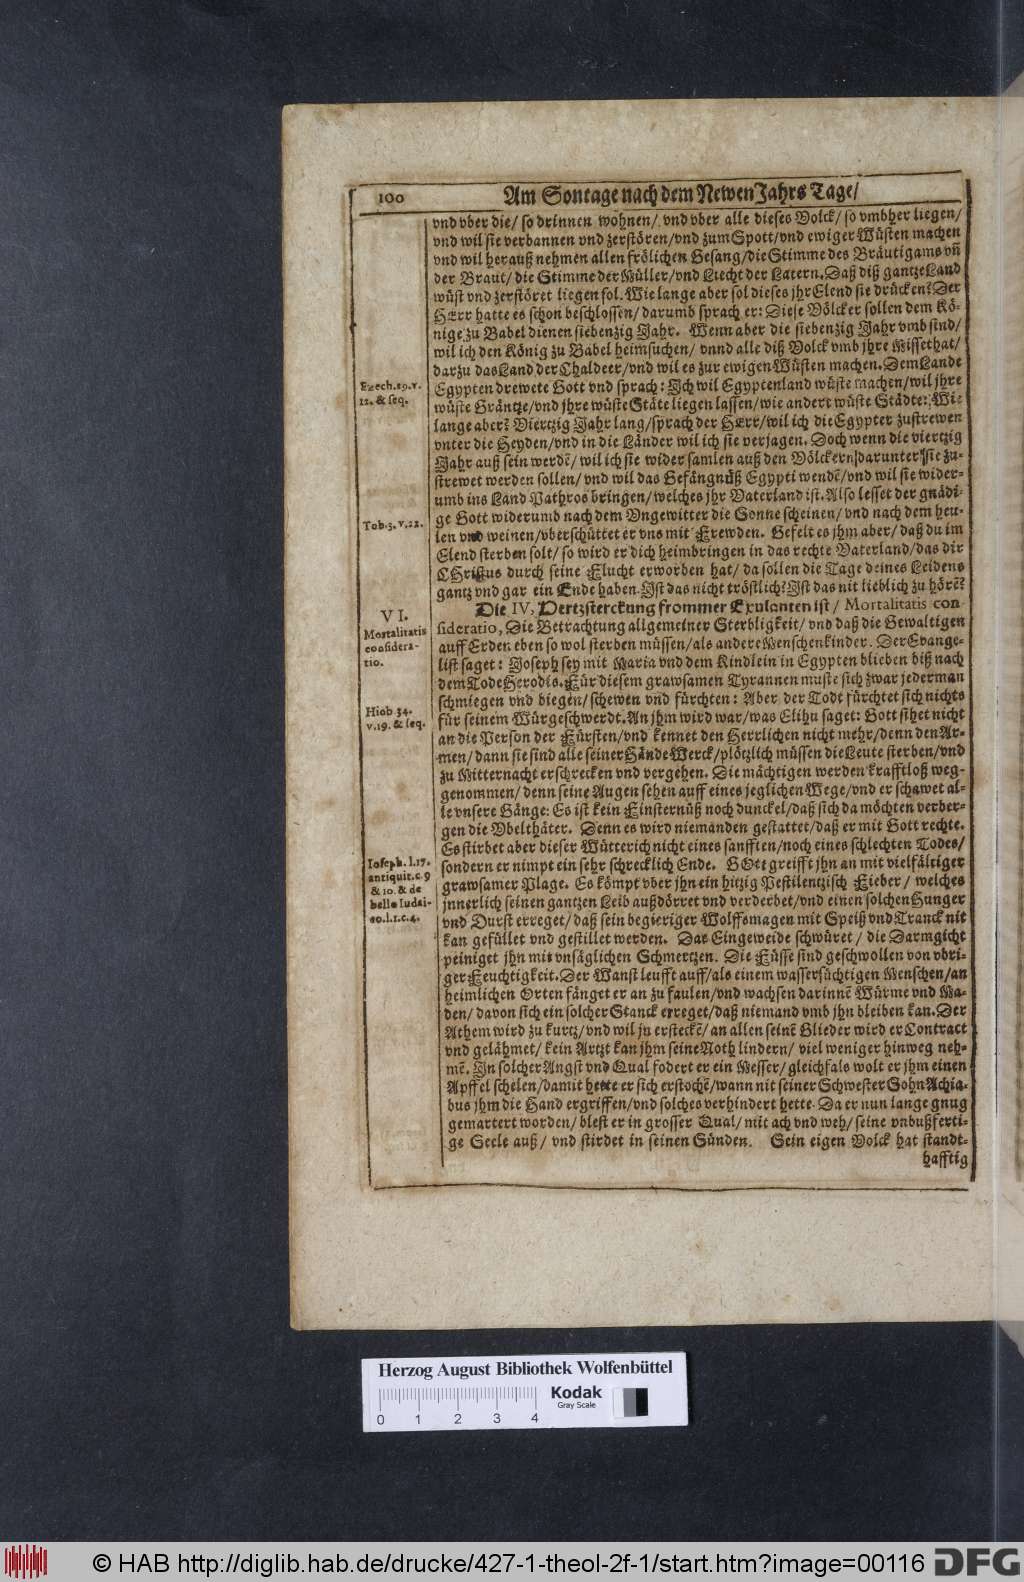 100
Am Sontage nach dem Newen Jahrs Tage/
vnd vber die/ so drinnen wohnen/ vnd vber alle dieses Volck/ so vmbher liegen/
vnd wil sie verbannen vnd zerstören/ vnd zum Spott/ vnd ewiger Wüsten machen
vnd wil herauß nehmen allen frölichen Gesang/ die Stimme des Bräutigams vñ
der Braut/ die Stimme der Müller/ vnd Liecht der Latern. Daß diß gantze Land
wüst vnd zerstöret liegen sol. Wie lange aber sol dieses jhr Elend sie drücken? Der
HErr hatte es schon beschlossen/ darumb sprach er: Diese Völcker sollen dem Kö-
nige zu Babel dienen siebenzig Jahr. Wenn aber die siebenzig Jahr vmb sind/
wil ich den König zu Babel heimsuchen/ vnnd alle diß Volck vmb jhre Missethat/
darzu das Land der Chaldeer/ vnd wil es zur ewigen Wüsten machen. Dem Lande
Ezech.29.v.
12. & seq.
Egypten drewete Gott vnd sprach: Ich wil Egyptenland wüste machen/ wil jhre
wüste Gräntze/ vnd jhre wüste Stäte liegen lassen/ wie andere wüste Städte: Wie
lange aber? Viertzig Jahr lang/ sprach der HErr/ wil ich die Egypter zustrewen
vnter die Heyden/ vnd in die Länder wil ich sie verjagen. Doch wenn die viertzig
Jahr auß sein werdẽ/ wil ich sie wider samlen auß den Völckern/ darunter sie zu-
strewet werden sollen/ vnd wil das Gefängnüß Egypti wendẽ/ vnd wil sie wider-
umb ins Land Pathros bringen/ welches jhr Vaterland ist. Also lesset der gnädi-
Tob.3.v.22.
ge Gott widerumb nach dem Vngewitter die Sonne scheinen/ vnd nach dem heu-
len vnd weinen/ vberschüttet er vns mit Frewden. Gefelt es jhm aber/ daß du im
Elend sterben solt/ so wird er dich heimbringen in das rechte Vaterland/ das dir
CHristus durch seine Flucht erworben hat/ da sollen die Tage deines Leidens
gantz vnd gar ein Ende haben. Ist das nicht tröstlich? Ist das nit lieblich zu hörẽ?
VI.
Mortalitatis
considera-
tio.
Die IV, Hertzsterckung frommer Exulanten ist/ Mortalitatis con-
sideratio, Die Betrachtung allgemeiner Sterbligkeit/ vnd daß die Gewaltigen
auff Erden eben so wol sterben müssen/ als andere Menschenkinder. Der Evange-
list saget: Joseph sey mit Maria vnd dem Kindlein in Egypten blieben biß nach
dem Tode Herodis. Für diesem grawsamen Tyrannen muste sich zwar jederman
schmiegen vnd biegen/ schewen vnd fürchten: Aber der Todt fürchtet sich nichts
Hiob 34.
v.19. & seq.
für seinem Würgeschwerdt. An jhm wird war/ was Elihu saget: Gott sihet nicht
an die Person der Fürsten/ vnd kennet den Herrlichen nicht mehr/ denn den Ar-
men/ dann sie sind alle seiner Hände Werck/ plötzlich müssen die Leute sterben/ vnd
zu Mitternacht erschrecken vnd vergehen. Die mächtigen werden krafftloß weg-
genommen/ denn seine Augen sehen auff eines jeglichen Wege/ vnd er schawet al-
le vnsere Gänge: Es ist kein Finsternüß noch dunckel/ daß sich da möchten verber-
gen die Vbelthäter. Denn es wird niemanden gestattet/ daß er mit Gott rechte.
Es stirbet aber dieser Wütterich nicht eines sanfften/ noch eines schlechten Todes/
Ioseph. l.17.
antiquit.c.9
& 10. & de
bello Iudai-
co.l.1.c.4.
sondern er nimpt ein sehr schrecklich Ende. GOtt greifft jhn an mit vielfältiger
grawsamer Plage. Es kömpt vber jhn ein hitzig Pestilentzisch Fieber/ welches
jnnerlich seinen gantzen Leib außdörret vnd verderbet/ vnd einen solchen Hunger
vnd Durst erreget/ daß sein begieriger Wolffsmagen mit Speiß vnd Tranck nit
kan gefüllet vnd gestillet werden. Das Eingeweide schwüret/ die Darmgicht
peiniget jhn mit vnsäglichen Schmertzen. Die Füsse sind geschwollen von vbri-
ger Feuchtigkeit. Der Wanst leufft auff/ als einem wassersüchtigen Menschen/ an
heimlichen Orten fänget er an zu faulen/ vnd wachsen darinnẽ Würme vnd Ma-
den/ davon sich ein solcher Stanck erreget/ daß niemand vmb jhn bleiben kan. Der
Athem wird zu kurtz/ vnd wil jn ersteckẽ/ an allen seinẽ Glieder wird er Contract
vnd gelähmet/ kein Artzt kan jhm seine Noth lindern/ viel weniger hinweg neh-
mẽ. In solcher Angst vnd Qual fodert er ein Messer/ gleichfals wolt er jhm einen
Apffel schelen/ damit hette er sich erstochẽ/ wann nit seiner Schwester Sohn Achia-
bus jhm die Hand ergriffen/ vnd solches verhindert hette. Da er nun lange gnug
gemartert worden/ blest er in grosser Qual/ mit ach vnd weh/ seine vnbußferti-
ge Seele auß/ vnd stirbet in seinen Sünden. Sein eigen Volck hat standt-
hafftig
Herzog August Bibliothek Wolfenbüttel
Kodak
Gray Scale
0 1 2 3 4
© HAB http://diglib.hab.de/drucke/427-1-theol-2f-1/start.htm?image=00116
DFG